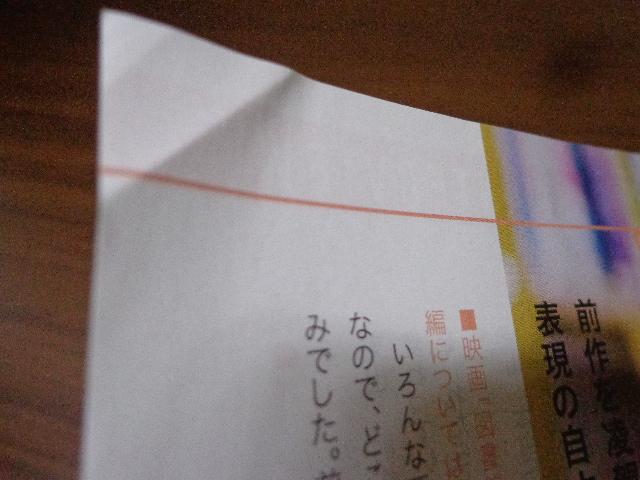 前作を凌
表現の自
■映画『図書館
編については
いろんな
なので、ど
みでした。